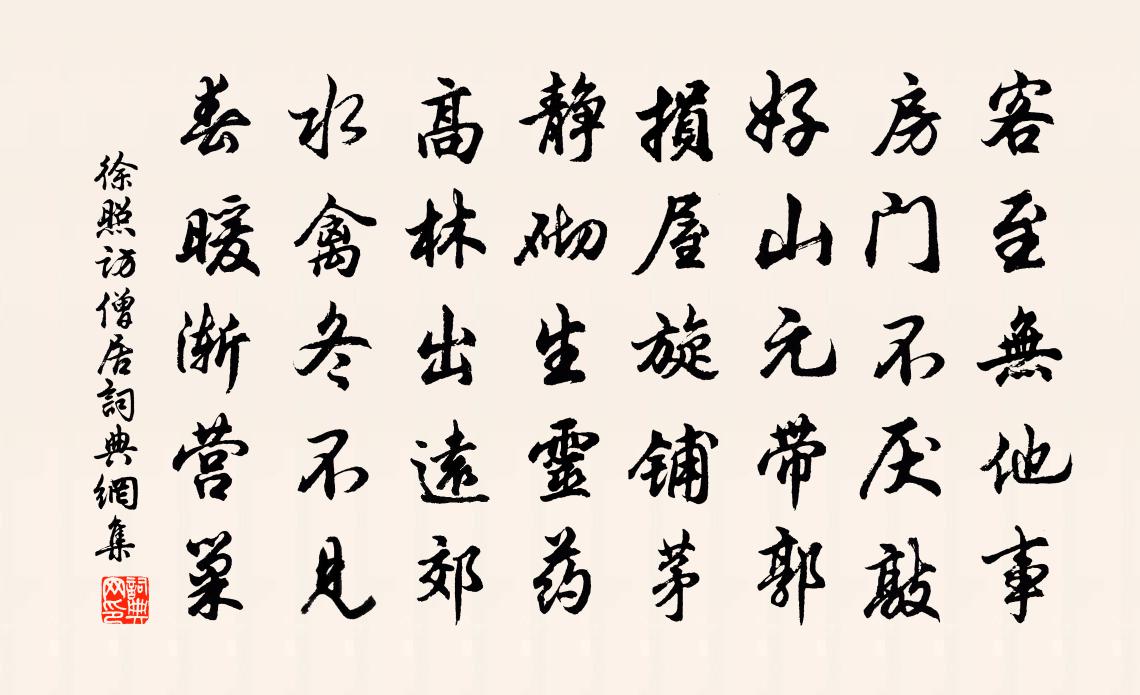 客至無他事
房门不厌敲
好山元带郭
損屋旋铺茅
静砌生靈药
高林出遠郊
水禽冬不見
春暖渐营巢
徐照訪僧居詞典網集
詞典网印